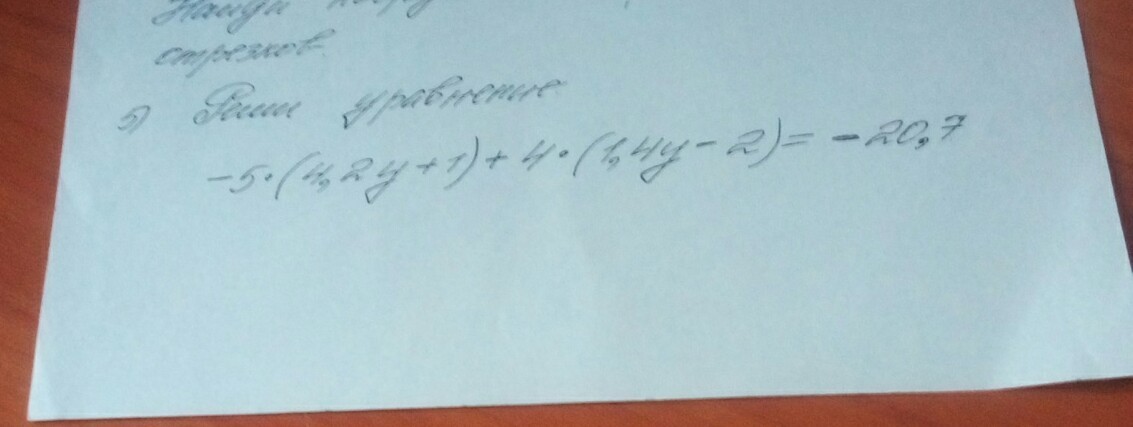 Найди
отрезков.
5) Реши уравнение
-5·(4,2y+1)+4·(1,4y-2)= -20,7